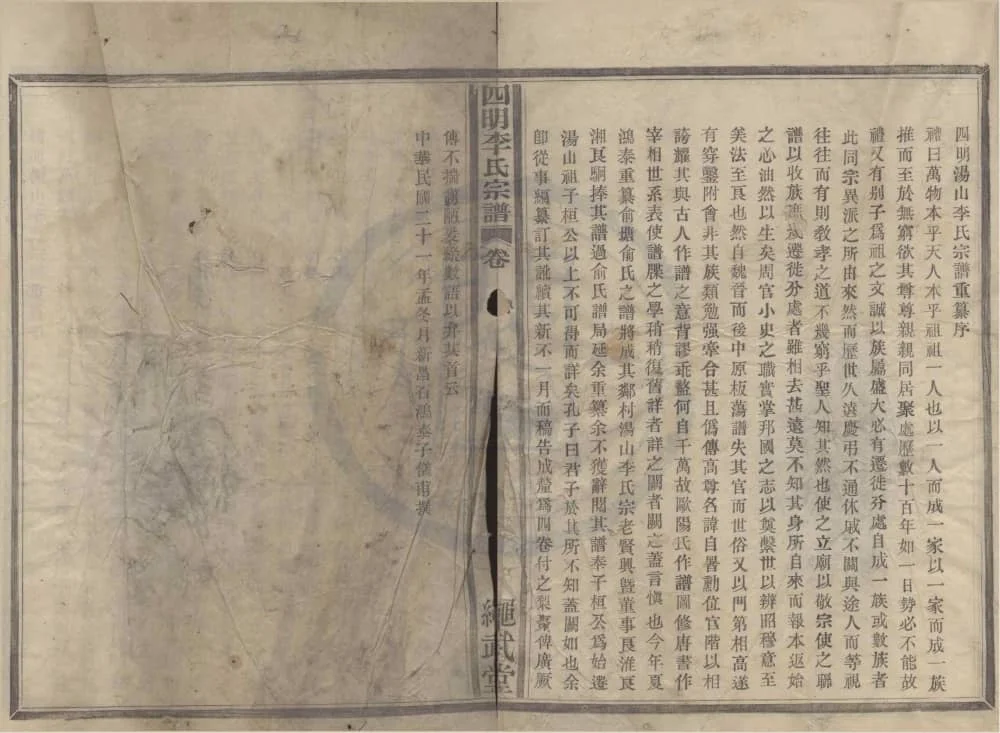 四明湯山李氏宗譜重纂序
禮曰萬物本乎天人本乎祖祖一人也以一人而成一家以一家而成一族
推而至於無窮欲其尊尊親親同居聚處歷數十百年如一日勢必不能故
禮又有別子爲祖之文誠以族屬盛大必有遷徙分處自成一族或數族者
此同宗異派之所由來然而歷世久遠慶弔不通休戚不關與途人而等視
往往而有則敎孝之道不幾窮乎聖人知其然也使之立廟以敬宗使之聯
譜以收族遷徙分處者雖相去甚遠莫不知其身所自來而報本返始
之心油然以生矣周官小史之職實掌邦國之志以奠繫世以辨昭穆意至
美法至良也然自魏晉而後中原板蕩譜失其官而世俗又以門第相高遂
有穿鑿附會非其族類勉强牽合甚且僞傳高尊各諱自署勳位官階以相
誇耀其與古人作譜之意背謬乖盭何自千萬故歐陽氏作譜圖修唐書作
宰相世系表使譜牒之學稍稍復舊詳者詳之闕者闕之蓋言愼也今年夏
鴻泰重纂俞塘俞氏之譜將成其鄰村湯山李氏宗老賢興暨董事良淮良
湘良駉捧其譜過俞氏譜局延余重纂余不獲辭閱其譜奉子桓公爲始遷
湯山祖子桓公以上不可得而詳矣孔子曰君子於其所不知蓋闕如也余
卽從事編纂訂其訛續其新不一月而稿告成釐爲四卷付之梨棗俾廣厥
傳不揣謭陋爰綴數語以弁其首云
中華民國二十一年孟冬月新昌石鴻泰子傑甫撰
四明李氏宗譜 卷
繩武堂